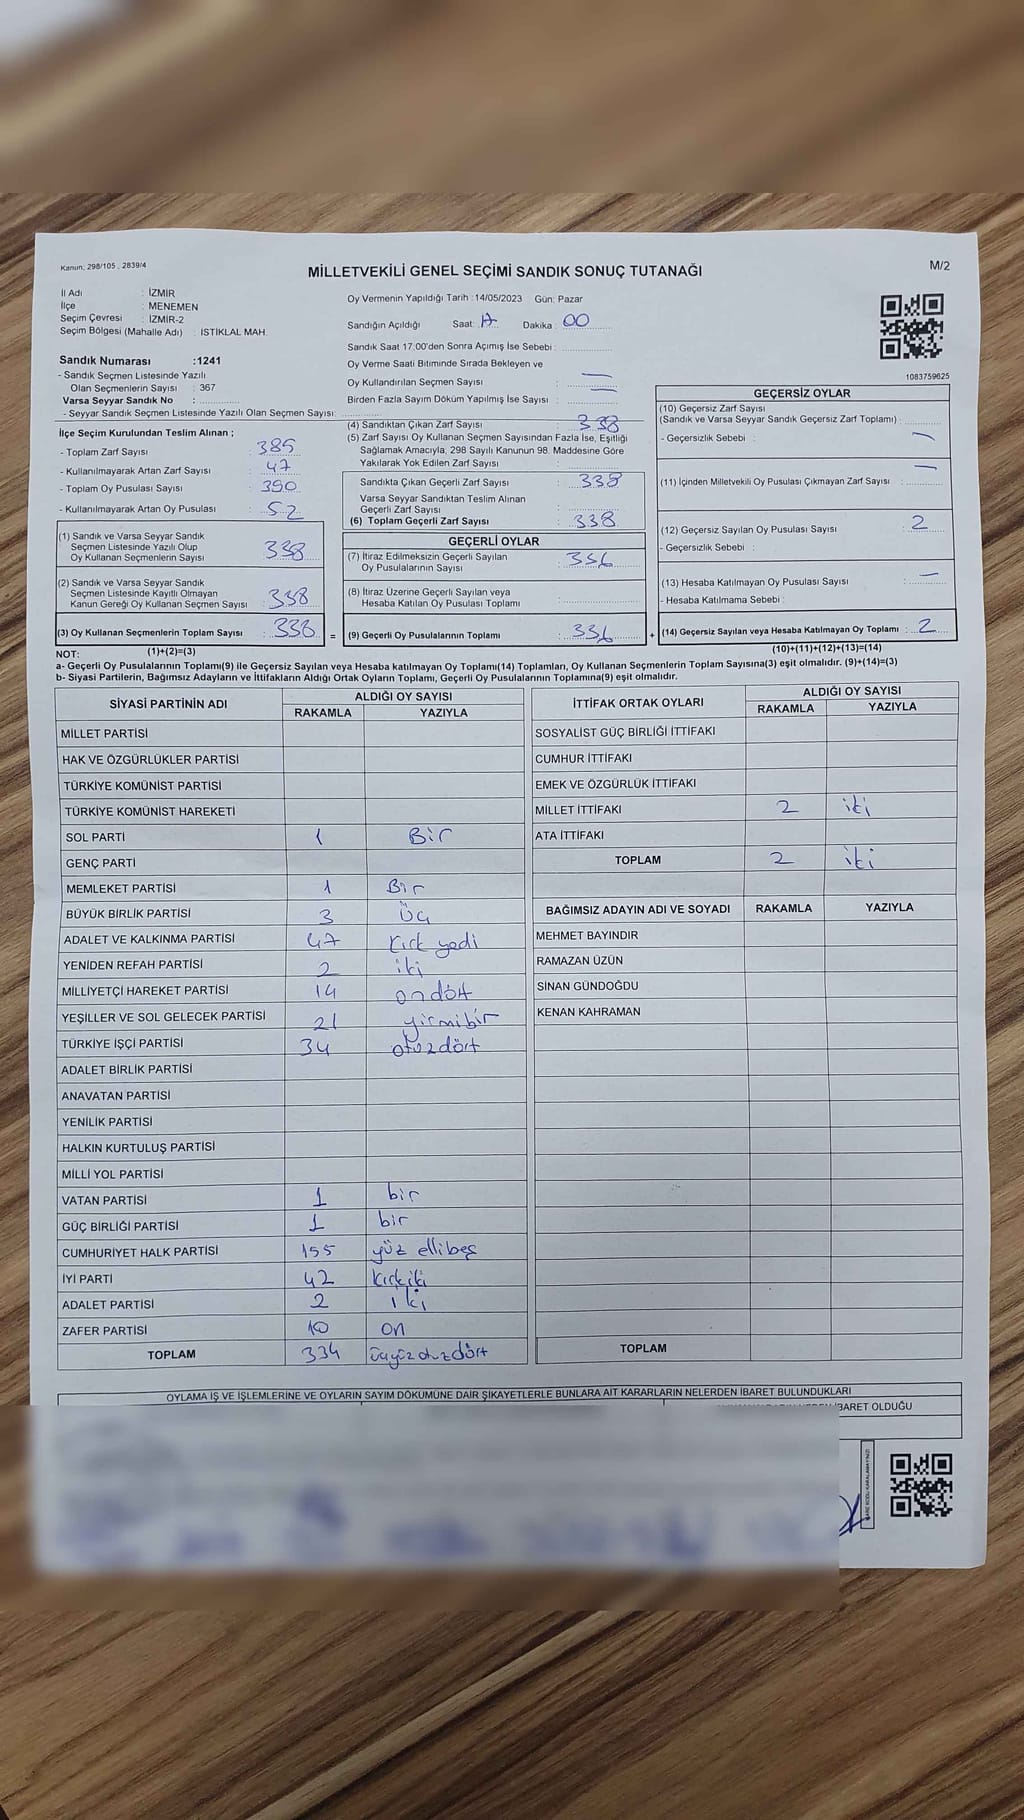 Kanun: 298/105 , 2839/4
MİLLETVEKİLİ GENEL SEÇİMİ SANDIK SONUÇ TUTANAĞI
M/2
İl Adı : İZMİR
İlçe : MENEMEN
Seçim Çevresi : İZMİR-2
Seçim Bölgesi (Mahalle Adı) : ISTIKLAL MAH.
Oy Vermenin Yapıldığı Tarih :14/05/2023 Gün: Pazar
Sandığın Açıldığı Saat: 17 Dakika : 00
Sandık Saat 17:00'den Sonra Açımış İse Sebebi :
1083759625
Sandık Numarası :1241
- Sandık Seçmen Listesinde Yazılı
Olan Seçmenlerin Sayısı : 367
Varsa Seyyar Sandık No :
- Seyyar Sandık Seçmen Listesinde Yazılı Olan Seçmen Sayısı:
Oy Verme Saati Bitiminde Sırada Bekleyen ve
Oy Kullandırılan Seçmen Sayısı : —
Birden Fazla Sayım Döküm Yapılmış İse Sayısı : —
İlçe Seçim Kurulundan Teslim Alınan ;
- Toplam Zarf Sayısı : 385
- Kullanılmayarak Artan Zarf Sayısı : 47
- Toplam Oy Pusulası Sayısı : 390
- Kullanılmayarak Artan Oy Pusulası : 52
(1) Sandık ve Varsa Seyyar Sandık
Seçmen Listesinde Yazılı Olup
Oy Kullanan Seçmenlerin Sayısı : 338
(2) Sandık ve Varsa Seyyar Sandık
Seçmen Listesinde Kayıtlı Olmayan
Kanun Gereği Oy Kullanan Seçmen Sayısı : 338
(3) Oy Kullanan Seçmenlerin Toplam Sayısı : 338
(4) Sandıktan Çıkan Zarf Sayısı : 338
(5) Zarf Sayısı Oy Kullanan Seçmen Sayısından Fazla İse, Eşitliği
Sağlamak Amacıyla, 298 Sayılı Kanunun 98. Maddesine Göre
Yakılarak Yok Edilen Zarf Sayısı :
Sandıkta Çıkan Geçerli Zarf Sayısı : 338
Varsa Seyyar Sandıktan Teslim Alınan
Geçerli Zarf Sayısı :
(6) Toplam Geçerli Zarf Sayısı : 338
GEÇERLİ OYLAR
(7) İtiraz Edilmeksizin Geçerli Sayılan
Oy Pusulalarının Sayısı : 336
(8) İtiraz Üzerine Geçerli Sayılan veya
Hesaba Katılan Oy Pusulası Toplamı :
= (9) Geçerli Oy Pusulalarının Toplamı : 336
GEÇERSİZ OYLAR
(10) Geçersiz Zarf Sayısı
(Sandık ve Varsa Seyyar Sandık Geçersiz Zarf Toplamı) :
- Geçersizlik Sebebi : —
(11) İçinden Milletvekili Oy Pusulası Çıkmayan Zarf Sayısı : —
(12) Geçersiz Sayılan Oy Pusulası Sayısı : 2
- Geçersizlik Sebebi :
(13) Hesaba Katılmayan Oy Pusulası Sayısı : —
- Hesaba Katılmama Sebebi :
+ (14) Geçersiz Sayılan veya Hesaba Katılmayan Oy Toplamı : 2
NOT: (1)+(2)=(3)
(10)+(11)+(12)+(13)=(14)
a- Geçerli Oy Pusulalarının Toplamı(9) ile Geçersiz Sayılan veya Hesaba katılmayan Oy Toplamı(14) Toplamları, Oy Kullanan Seçmenlerin Toplam Sayısına(3) eşit olmalıdır. (9)+(14)=(3)
b- Siyasi Partilerin, Bağımsız Adayların ve İttifakların Aldığı Ortak Oyların Toplamı, Geçerli Oy Pusulalarının Toplamına(9) eşit olmalıdır.
SİYASİ PARTİNİN ADI ALDIĞI OY SAYISI
RAKAMLA YAZIYLA
MİLLET PARTİSİ
HAK VE ÖZGÜRLÜKLER PARTİSİ
TÜRKİYE KOMÜNIST PARTISI
TÜRKİYE KOMÜNIST HAREKETİ
SOL PARTİ 1 Bir
GENÇ PARTİ
MEMLEKET PARTİSİ 1 Bir
BÜYÜK BİRLİK PARTİSİ 3 üç
ADALET VE KALKINMA PARTİSİ 47 kırk yedi
YENİDEN REFAH PARTİSİ 2 iki
MİLLİYETÇİ HAREKET PARTİSİ 14 ondört
YEŞİLLER VE SOL GELECEK PARTİSİ 21 yirmibir
TÜRKİYE İŞÇİ PARTİSİ 34 otuzdört
ADALET BİRLİK PARTİSİ
ANAVATAN PARTİSİ
YENİLİK PARTİSİ
HALKIN KURTULUŞ PARTİSİ
MİLLİ YOL PARTİSİ
VATAN PARTİSİ 1 bir
GÜÇ BİRLİĞİ PARTİSİ 1 bir
CUMHURİYET HALK PARTİSİ 155 yüz ellibeş
İYİ PARTİ 42 kırkiki
ADALET PARTİSİ 2 iki
ZAFER PARTİSİ 10 on
TOPLAM 334 üçyüzotuzdört
İTTİFAK ORTAK OYLARI ALDIĞI OY SAYISI
RAKAMLA YAZIYLA
SOSYALIST GÜÇ BİRLİĞİ İTTİFAKI
CUMHUR İTTİFAKI
EMEK VE ÖZGÜRLÜK İTTİFAKI
MİLLET İTTİFAKI 2 iki
ATA İTTİFAKI
TOPLAM 2 iki
BAĞIMSIZ ADAYIN ADI VE SOYADI RAKAMLA YAZIYLA
MEHMET BAYINDIR
RAMAZAN ÜZÜN
SİNAN GÜNDOĞDU
KENAN KAHRAMAN
TOPLAM
OYLAMA İŞ VE İŞLEMLERİNE VE OYLARIN SAYIM DÖKÜMÜNE DAİR ŞİKAYETLERLE BUNLARA AİT KARARLARIN NELERDEN İBARET BULUNDUKLARI
İBARET OLDUĞU